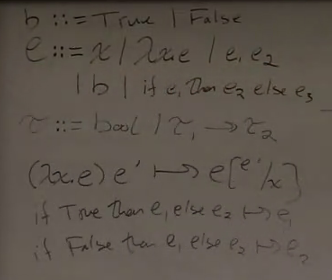 b ::= True | False
e ::= x | λx.e | e₁ e₂
| b | if e₁ then e₂ else e₃
τ ::= bool | τ₁ → τ₂
(λx.e) e' ↦ e[e'/x]
if True then e₁ else e₂ ↦ e₁
if False then e₁ else e₂ ↦ e₂